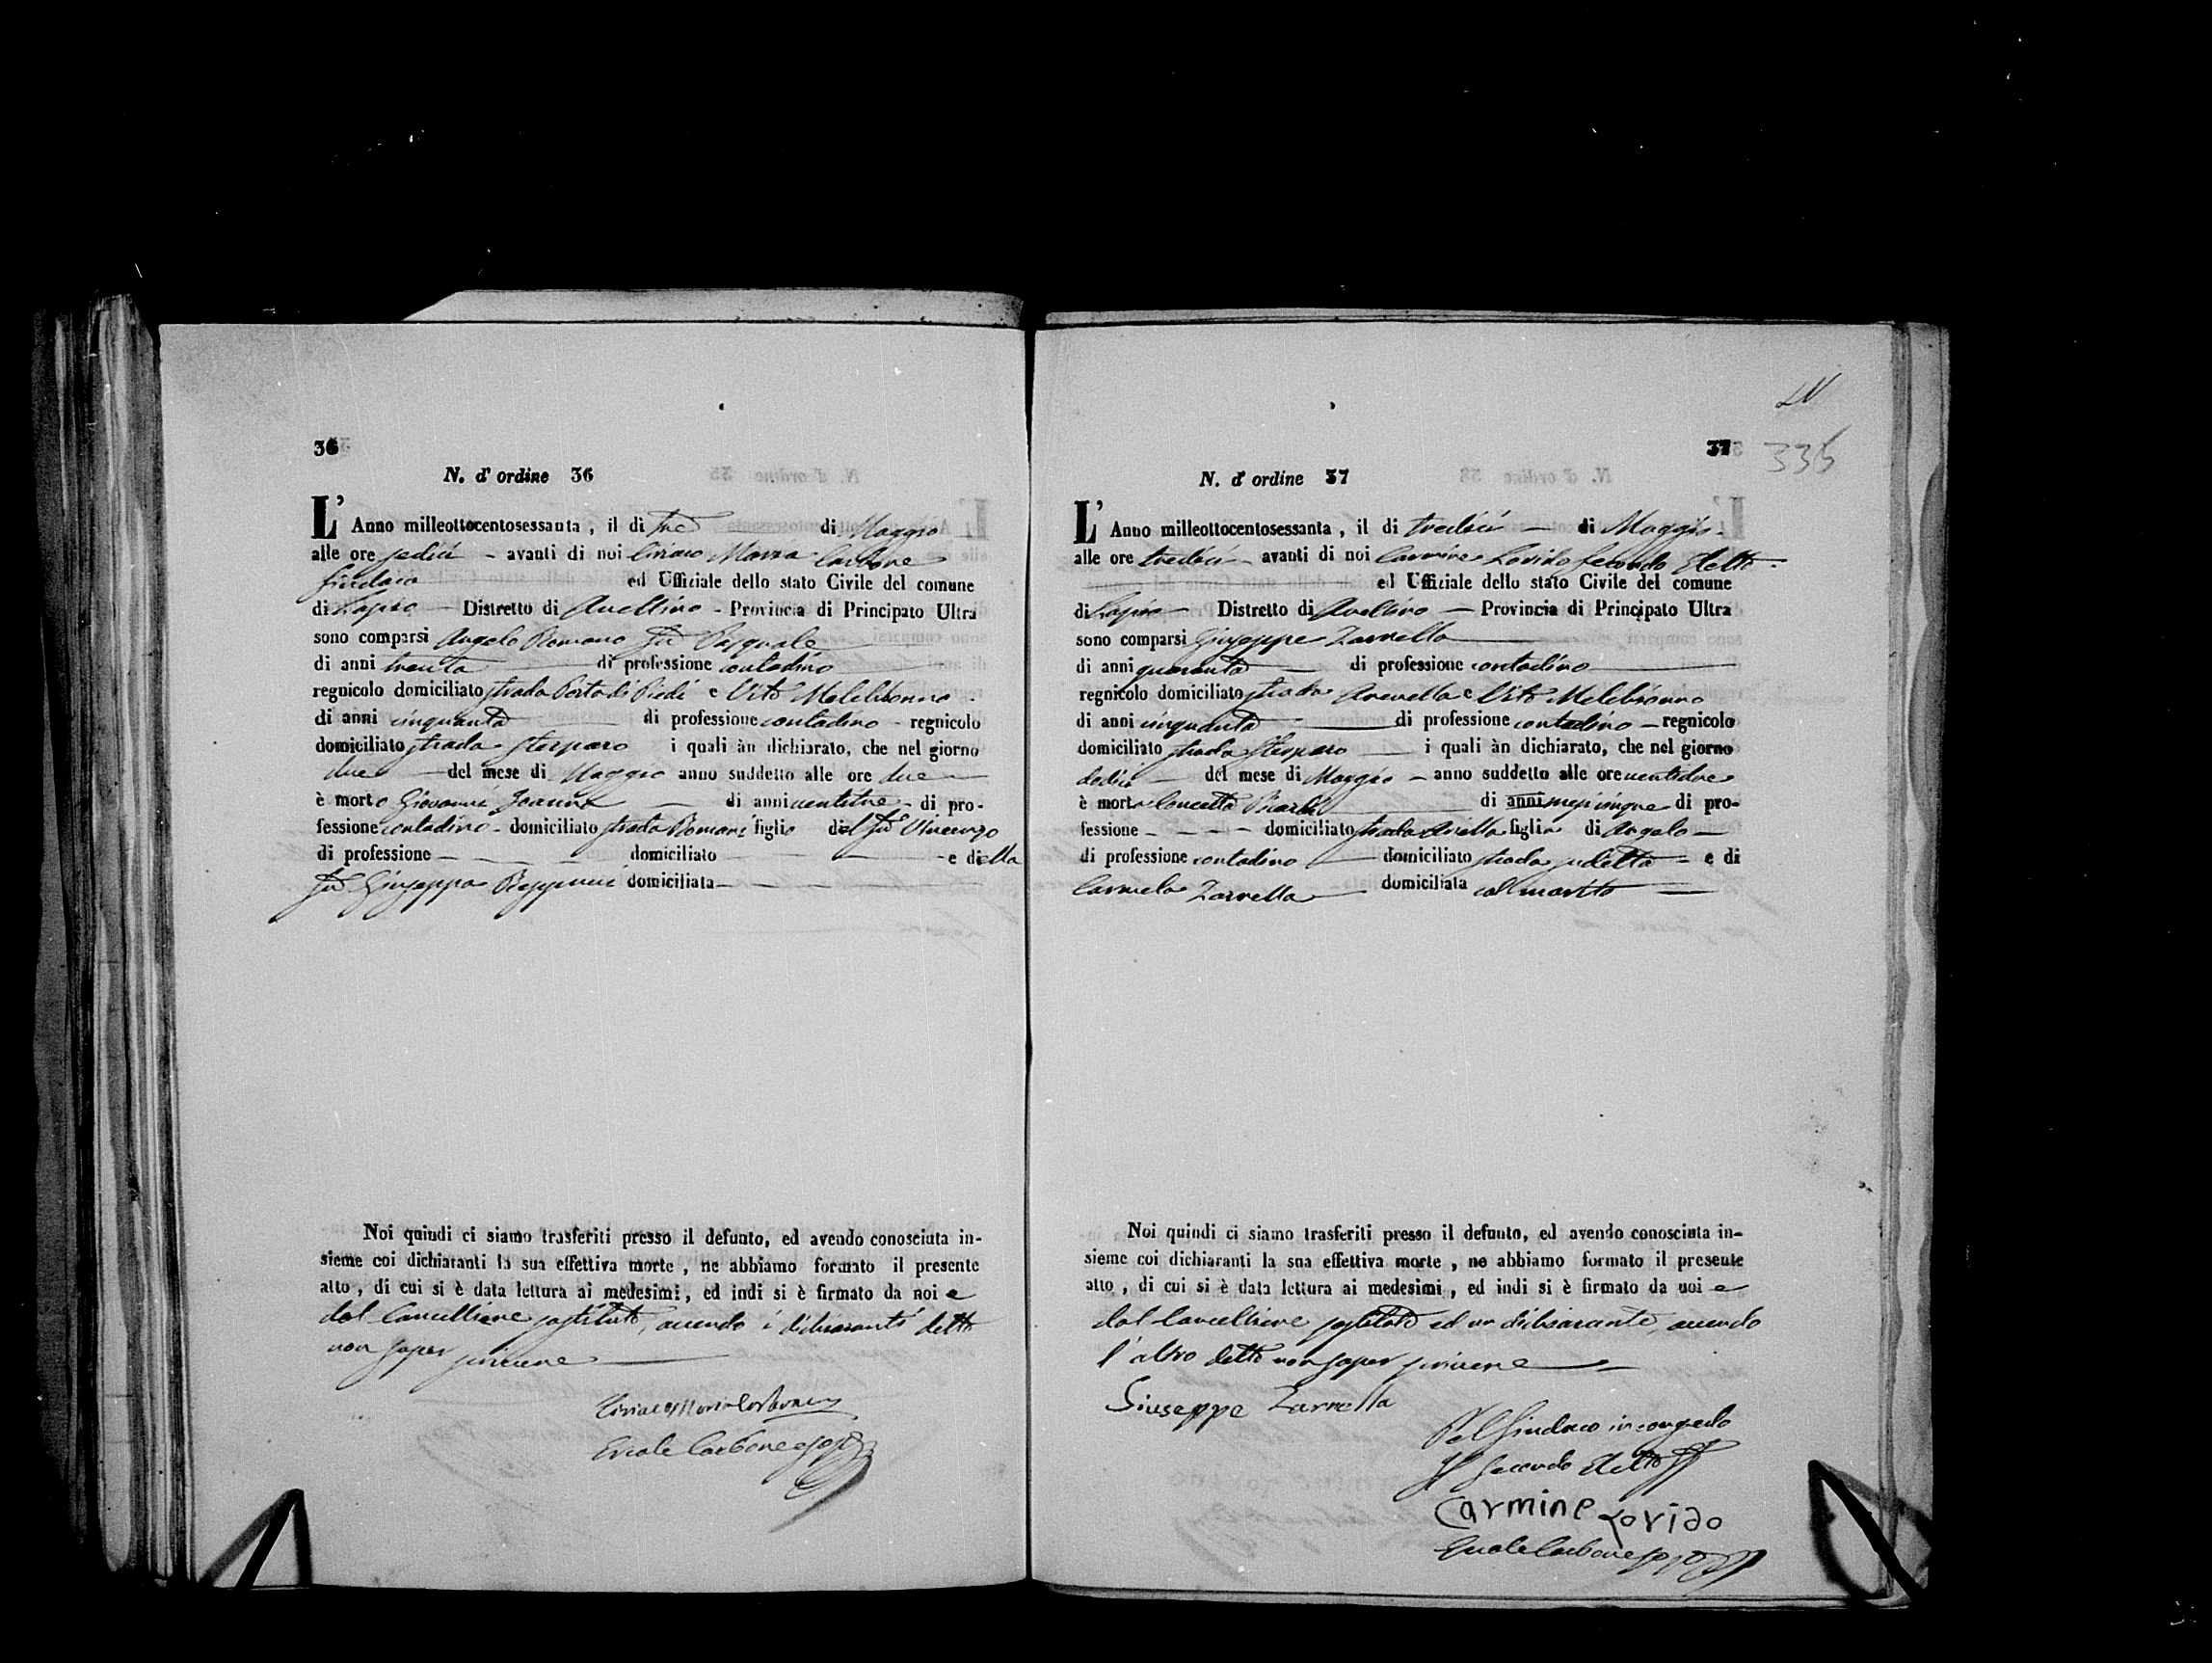 36
N. d' ordine 36
L' Anno milleottocentosessanta, il di tre di Maggio
alle ore sedici - avanti di noi Ciriaco Maria Carbone
Sindaco ed Uffiziale dello stato Civile del comune
di Lapio Distretto di Avellino - Provincia di Principato Ultra
sono comparsi Angelo Romano fu Pasquale
di anni trenta di professione contadino
regnicolo domiciliato strada Porta di Piedi e Vito Molebionno
di anni cinquanta di professione contadino - regnicolo
domiciliato strada i quali àn dichiarato, che nel giorno
due del mese di Maggio anno suddetto alle ore due
è morto Giovanni di anni ventitre - di pro-
fessione contadino - domiciliato strada Romani figlio del fu Vincenzo
di professione - domiciliato - e di ella
fu Giuseppa domiciliata
Noi quindi ci siamo trasferiti presso il defunto, ed avendo conosciuta in-
sieme coi dichiaranti la sua effettiva morte, ne abbiamo formato il presente
atto, di cui si è data lettura ai medesimi, ed indi si è firmato da noi e
dal Cancelliere sostituto, avendo i dichiaranti detto
non saper scrivere
Ciriaco Maria Carbone
Ercole Carbone
37
335
N. d' ordine 37
L' Anno milleottocentosessanta, il di tredici di Maggio
alle ore tredici - avanti di noi Carmine Lorido secondo Eletto
ed Uffiziale dello stato Civile del comune
di Lapio Distretto di Avellino - Provincia di Principato Ultra
sono comparsi Giuseppe Zarrella
di anni quaranta di professione contadino
regnicolo domiciliato strada e Vito Molebionno
di anni cinquanta di professione contadino - regnicolo
domiciliato strada i quali àn dichiarato, che nel giorno
dodici del mese di Maggio - anno suddetto alle ore ventidue
è morta Concetta di anni mesi cinque di pro-
fessione - domiciliato strada figlia di Angelo
di professione contadino domiciliato strada sudetta e di
Carmela Zarrella domiciliata col marito
Noi quindi ci siamo trasferiti presso il defunto, ed avendo conosciuta in-
sieme coi dichiaranti la sua effettiva morte, ne abbiamo formato il presente
atto, di cui si è data lettura ai medesimi, ed indi si è firmato da noi e
dal Cancelliere sostituto ed un dichiarante, avendo
l'altro detto non saper scrivere
Giuseppe Zarrella
Pel Sindaco in congedo
Il Secondo Eletto
Carmine Lorido
Ercole Carbone